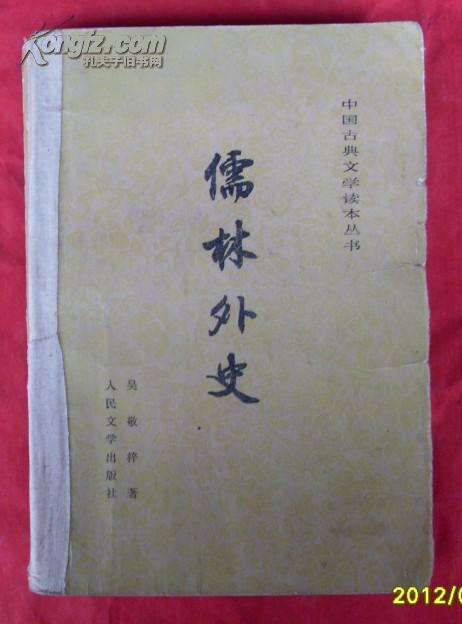 Kongfz.com
孔夫子旧书网
中国古典文学读本丛书
儒林外史
吴敬梓著
人民文学出版社
2012/0